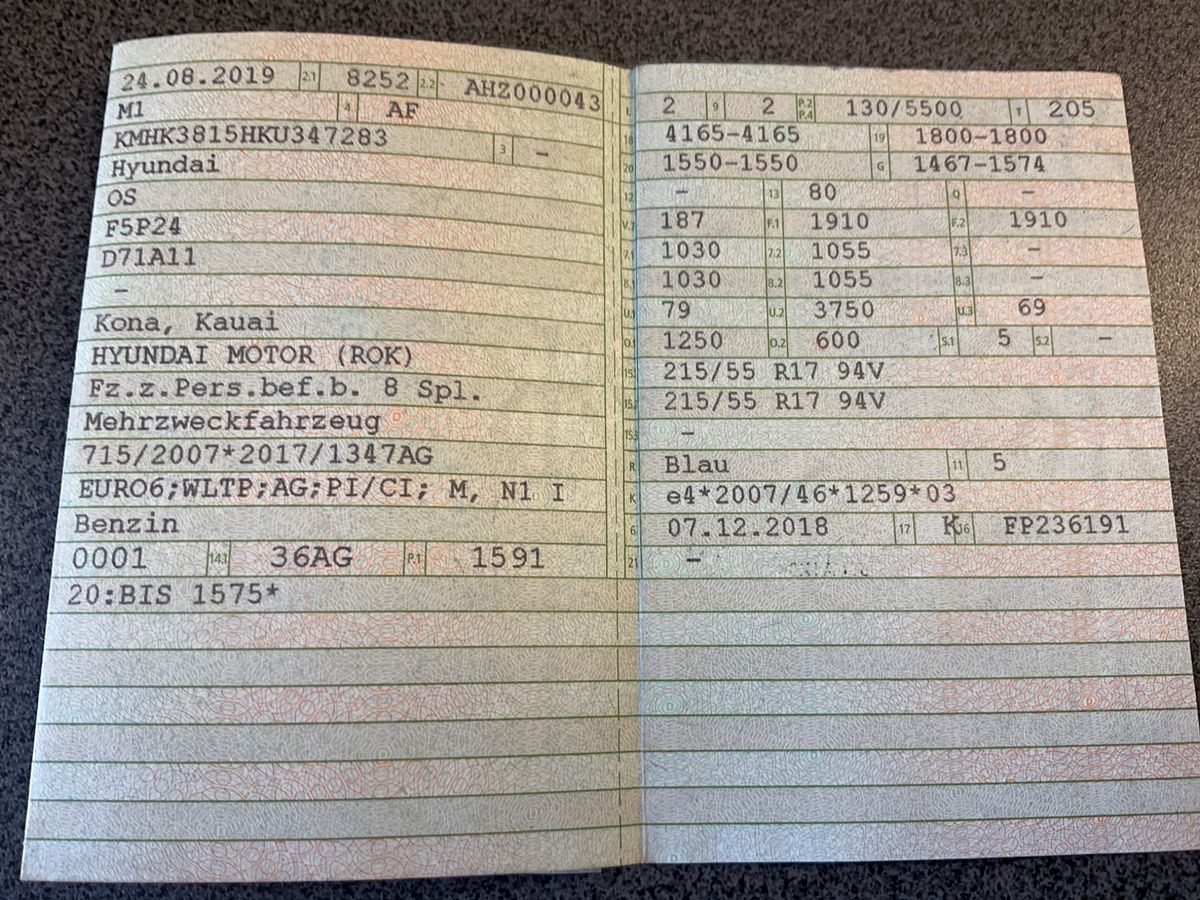 24.08.2019 2.1 8252 2.2 AHZ000043
M1 4 AF
KMHK3815HKU347283 3 –
Hyundai
OS
F5P24
D71A11
–
Kona, Kauai
HYUNDAI MOTOR (ROK)
Fz.z.Pers.bef.b. 8 Spl.
Mehrzweckfahrzeug
715/2007*2017/1347AG
EURO6;WLTP;AG;PI/CI; M, N1 I
Benzin
0001 14.1 36AG P.1 1591
20:BIS 1575*
L 2 9 2 P.2 P.4 130/5500 T 205
18 4165–4165 19 1800–1800
20 1550–1550 G 1467–1574
12 – 13 80 Q –
V.7 187 F.1 1910 F.2 1910
7.1 1030 7.2 1055 7.3 –
8.1 1030 8.2 1055 8.3 –
U.1 79 U.2 3750 U.3 69
O.1 1250 O.2 600 S.1 5 S.2 –
15.1 215/55 R17 94V
15.2 215/55 R17 94V
15.3 –
R Blau 11 5
K e4*2007/46*1259*03
6 07.12.2018 17 K 16 FP236191
21 –